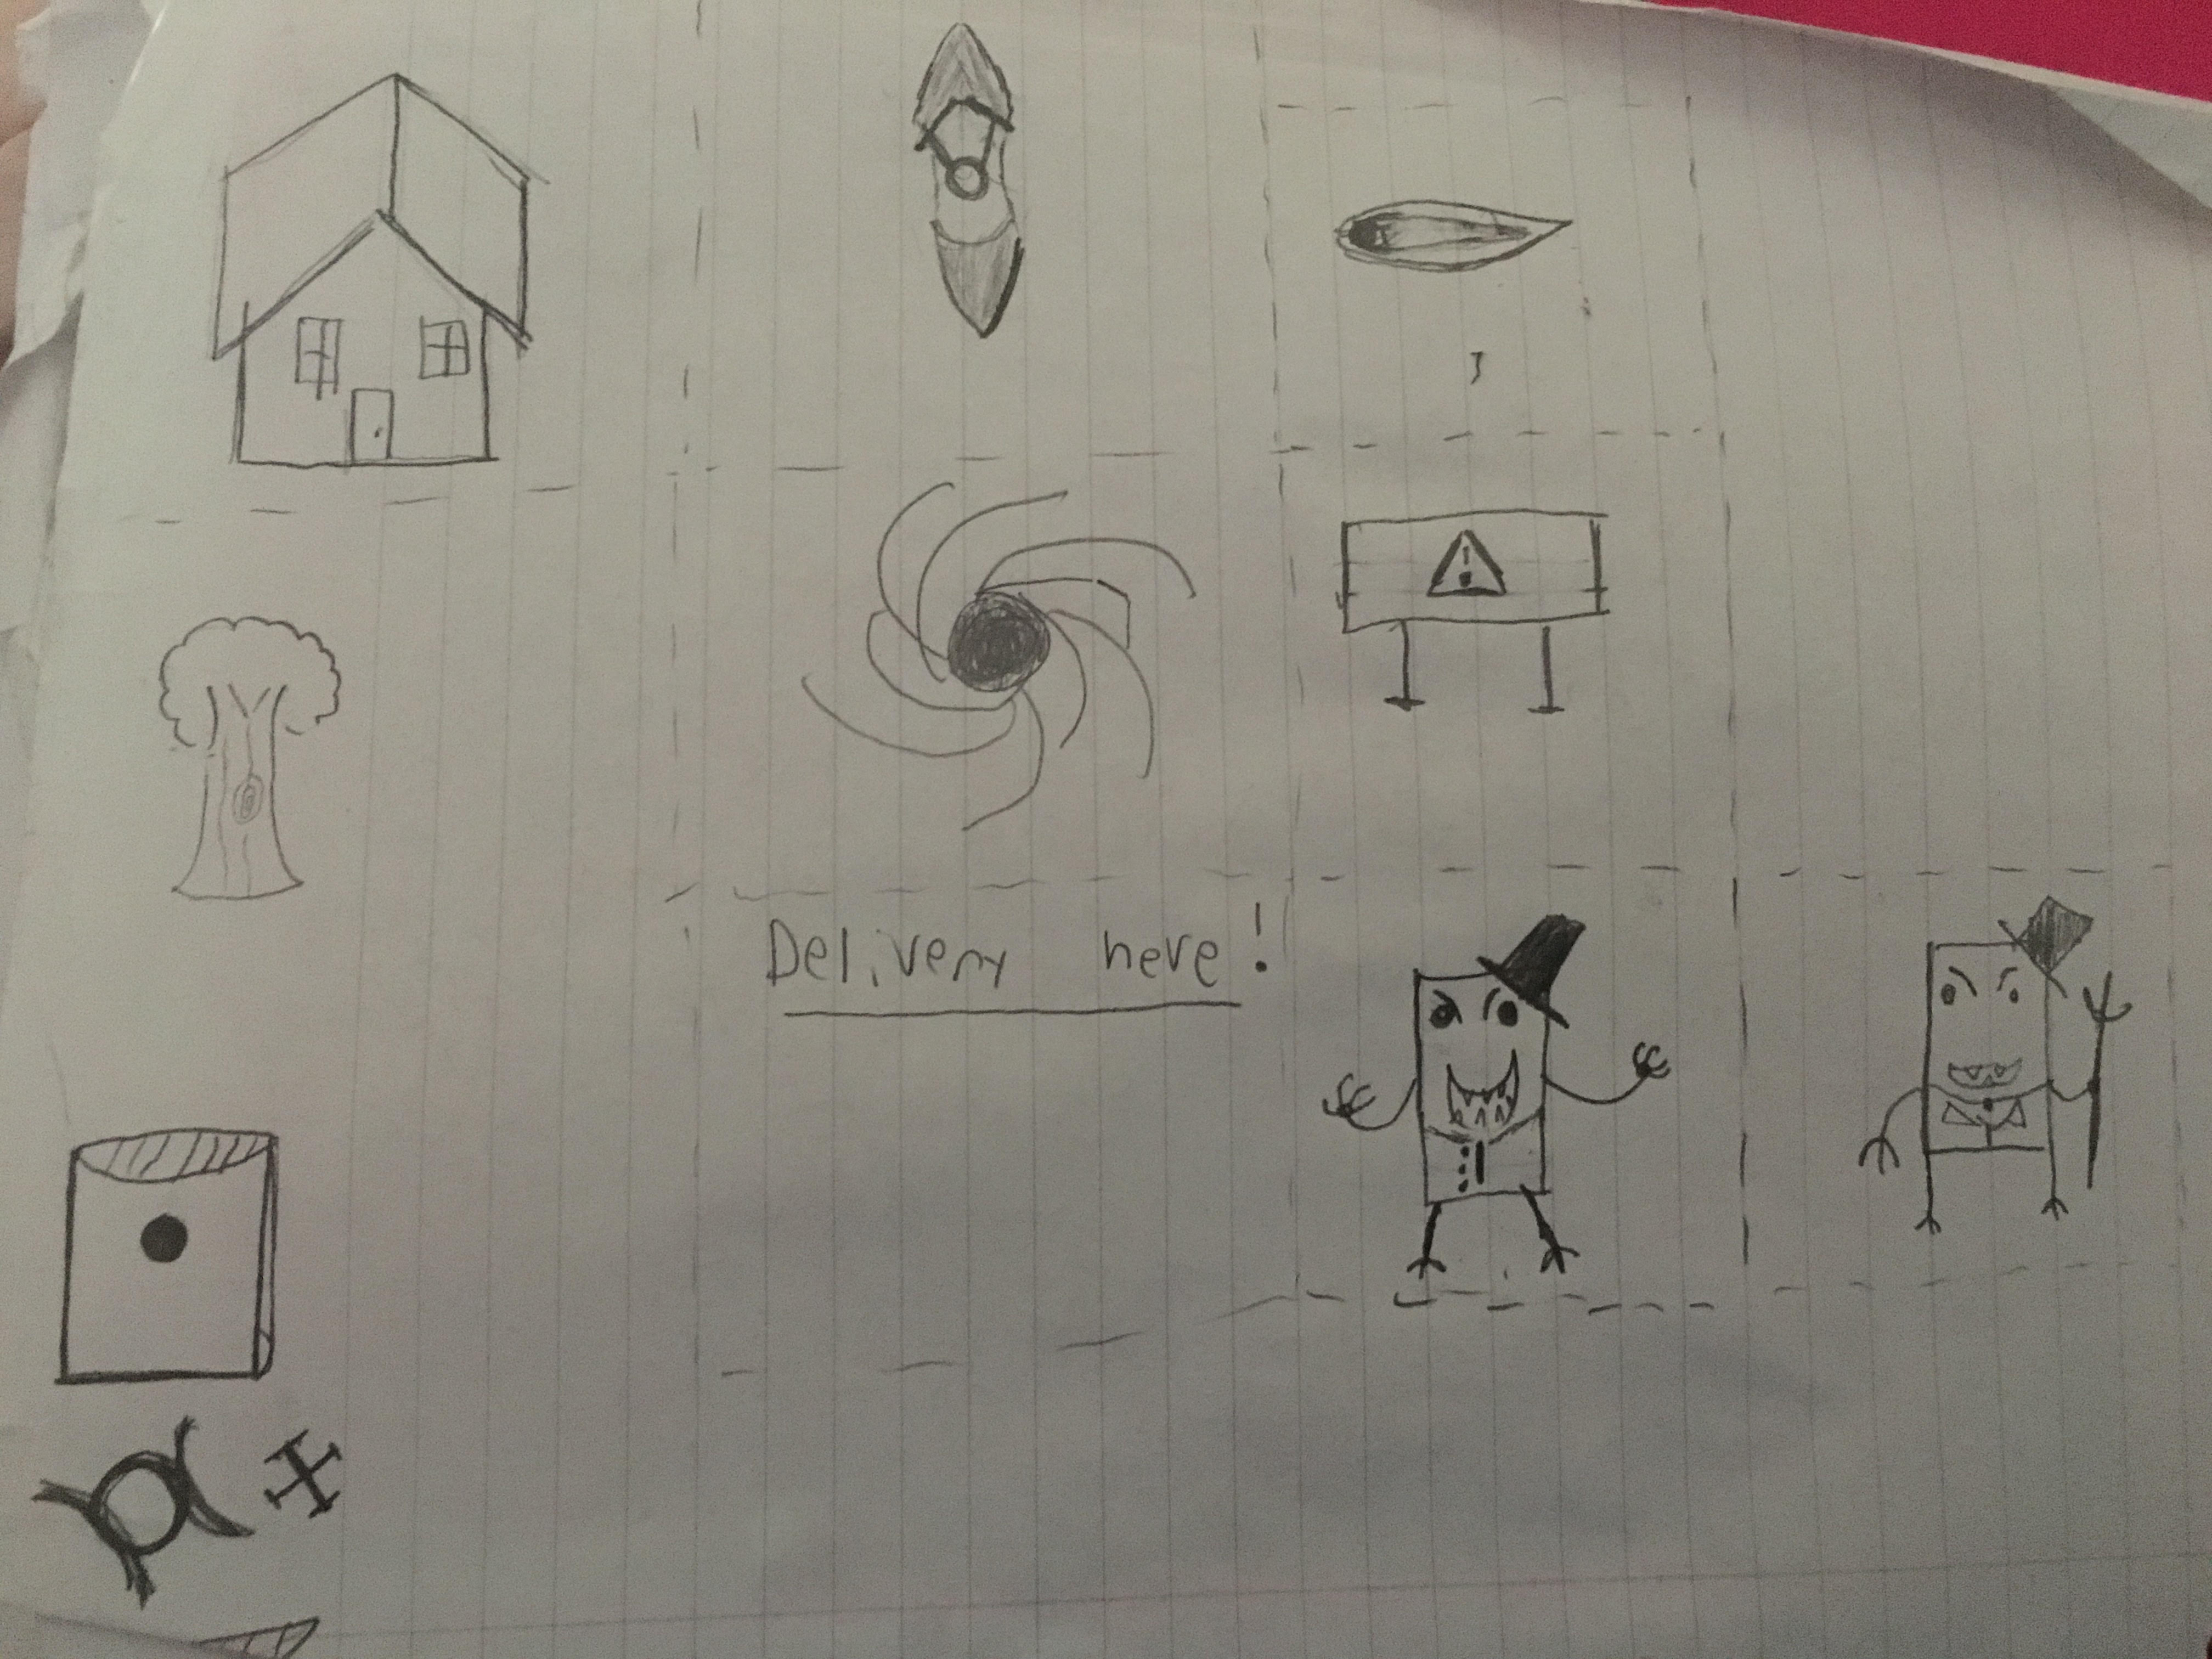 Delivery here!